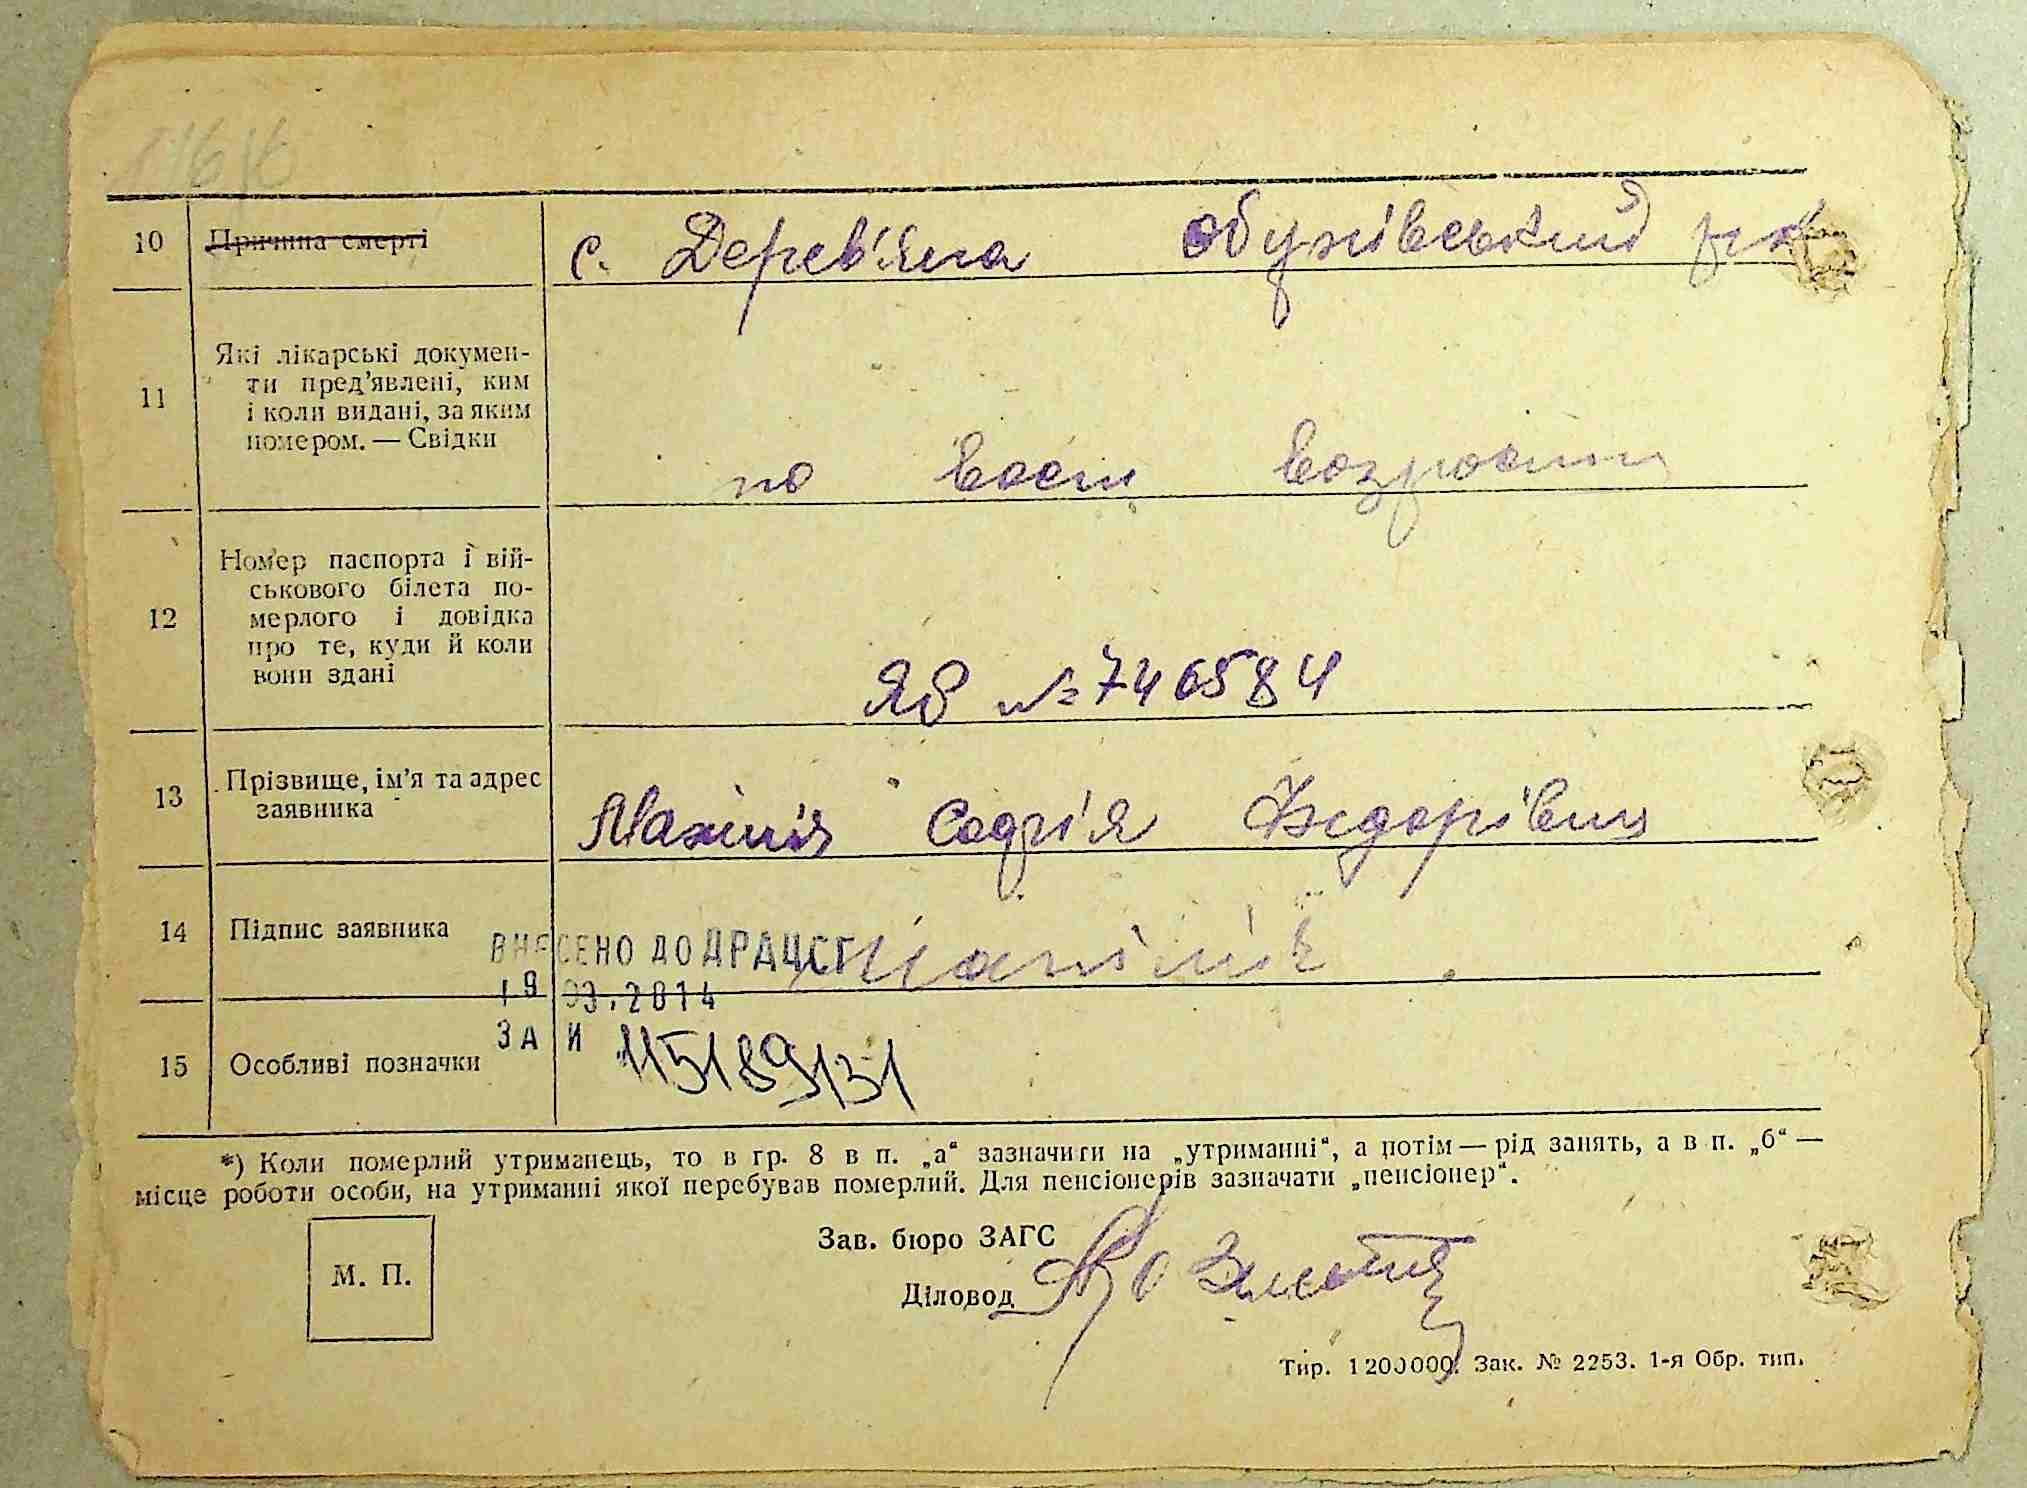 10 Причина смерті с. Дерев'яна Обухівський р-н
11 Які лікарські докумен-
ти пред'явлені, ким
і коли видані, за яким
номером. — Свідки
по
12 Номер паспорта і вій-
ськового білета по-
мерлого і довідка
про те, куди й коли
вони здані
№ 746584
13 Прізвище, ім'я та адрес
заявника
Софія Федорівна
14 Підпис заявника
ВНЕСЕНО ДО ДРАЦСГ
19 03.2014
ЗА И 115189131
15 Особливі позначки
*) Коли померлий утриманець, то в гр. 8 в п. „а“ зазначити на „утриманні“, а потім — рід занять, а в п. „б“ —
місце роботи особи, на утриманні якої перебував померлий. Для пенсіонерів зазначати „пенсіонер“.
Зав. бюро ЗАГС
М. П.
Діловод
Тир. 1200000. Зак. № 2253. 1-я Обр. тип.